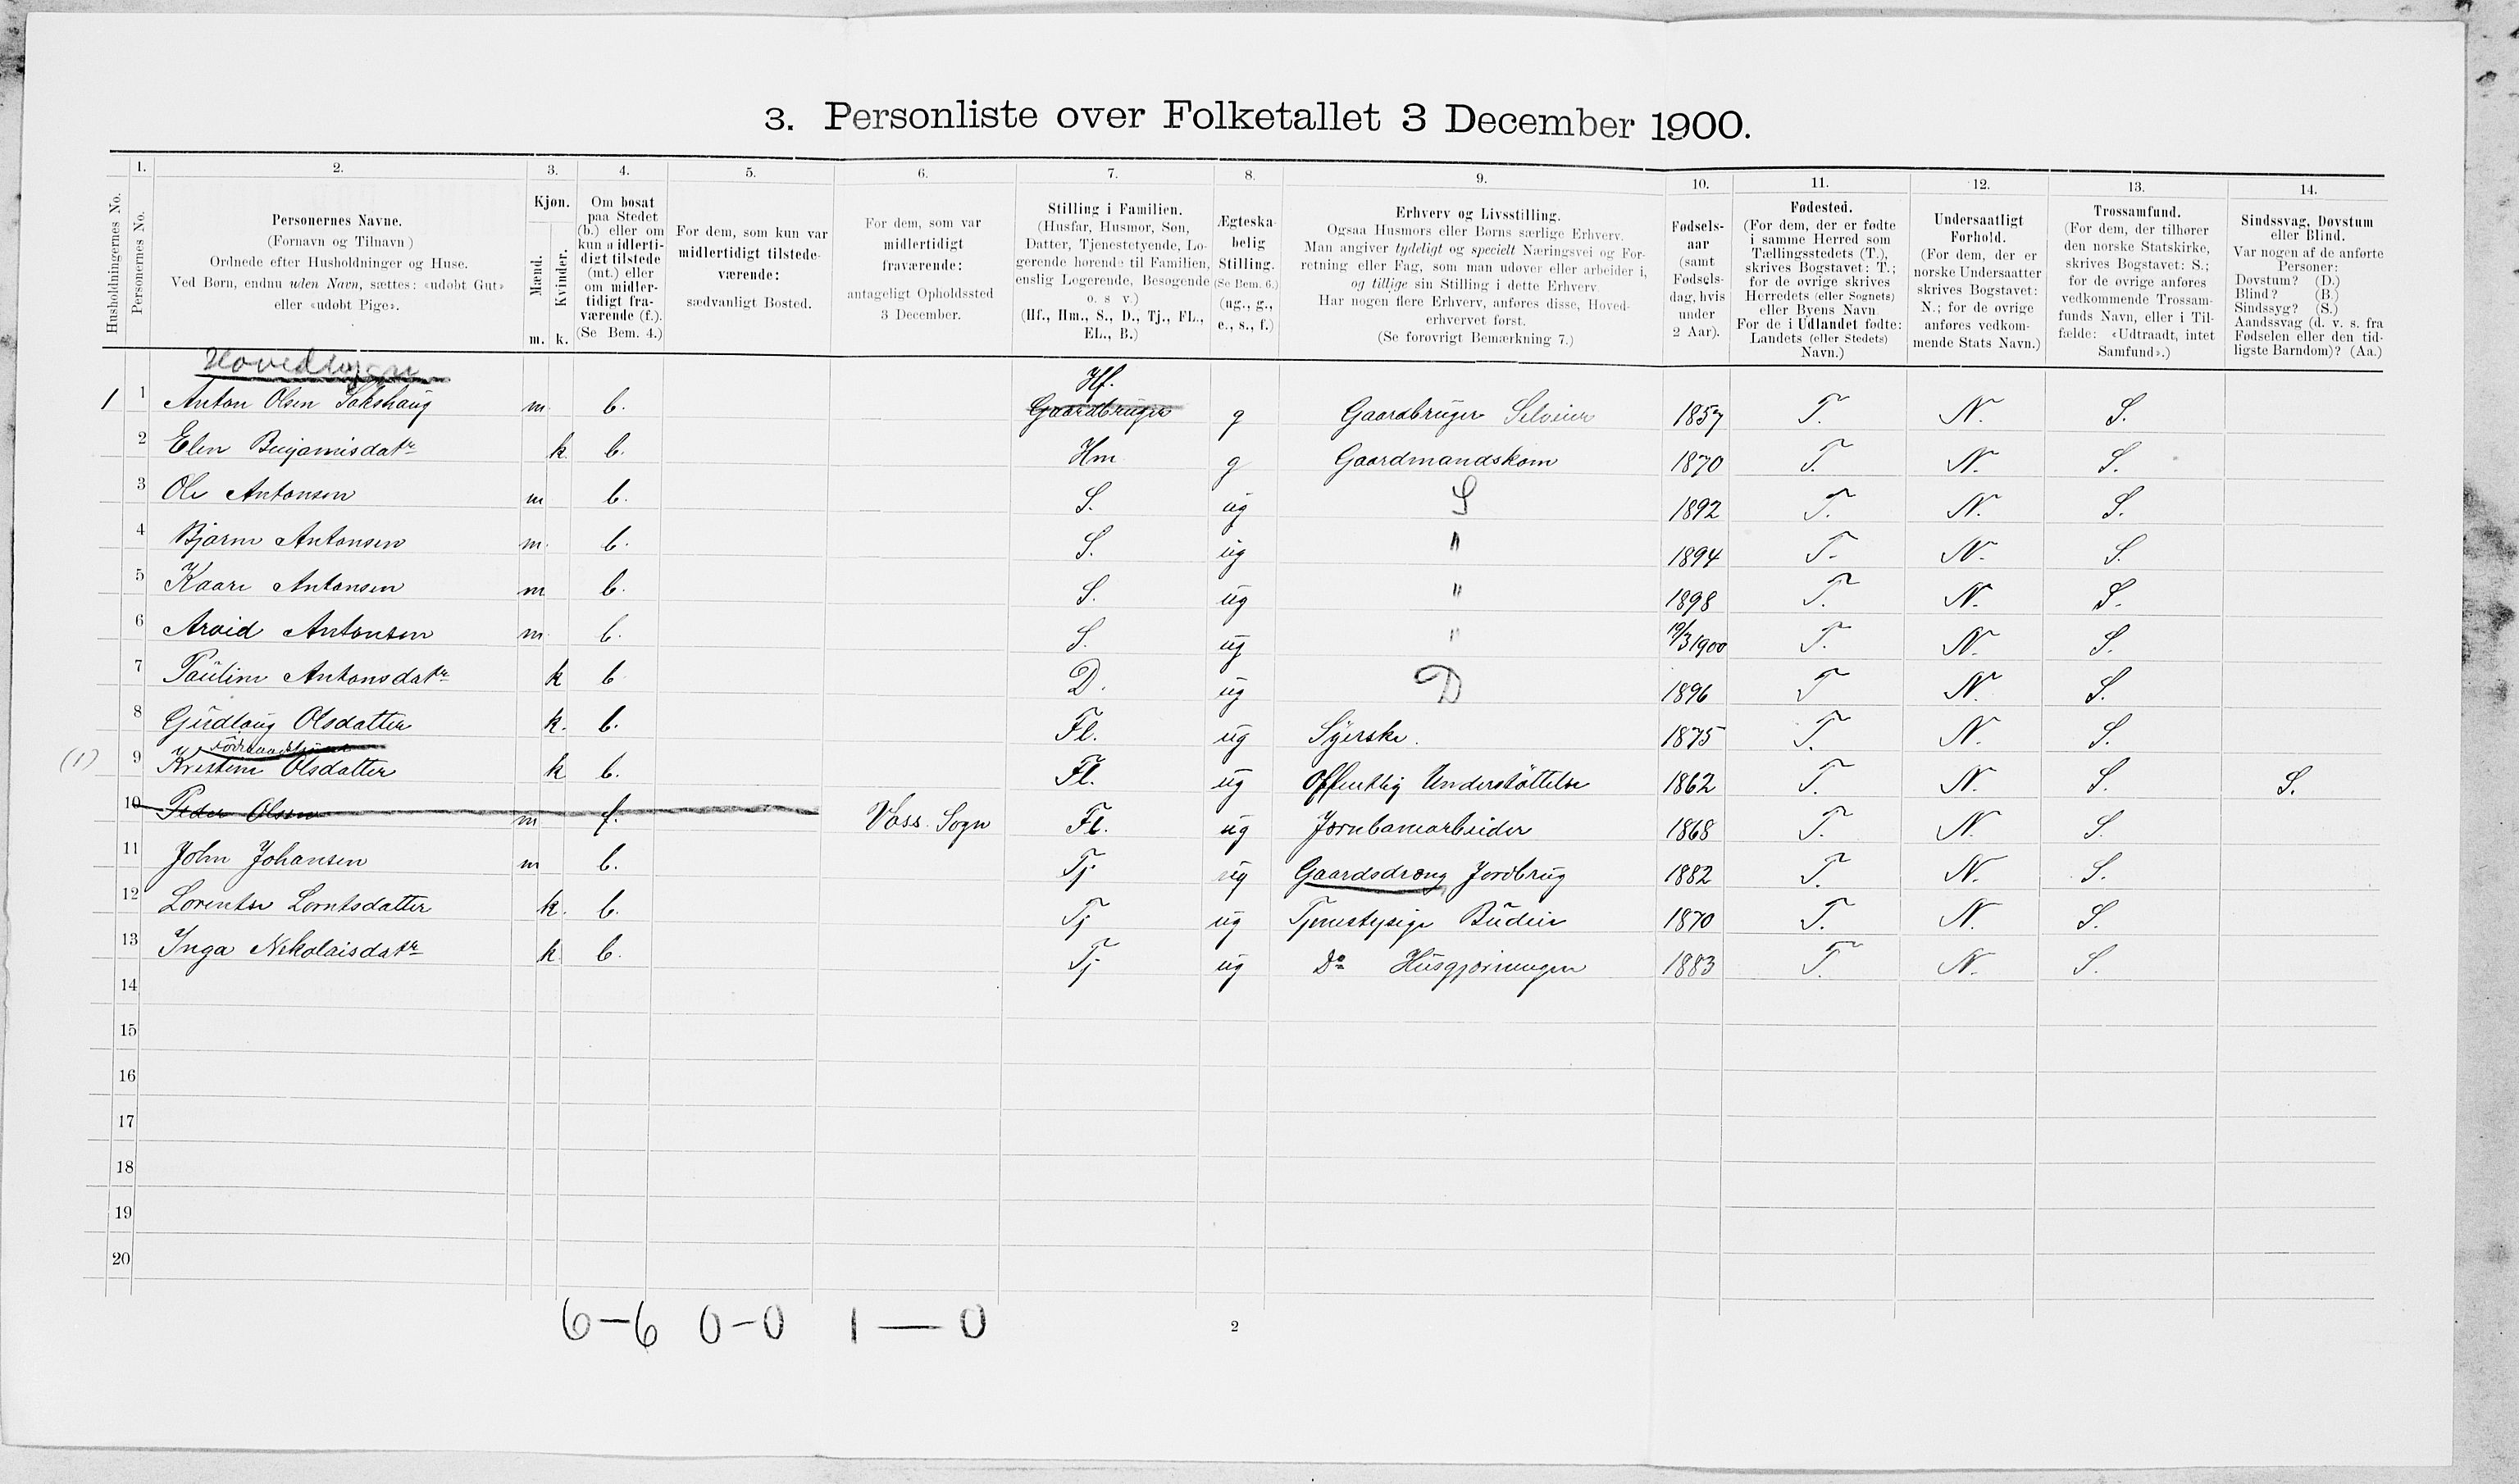 3. Personliste over Folketallet 3 December 1900.
Husholdningernes No.
1. Personernes No.
2. Personernes Navne.
(Fornavn og Tilnavn)
Ordnede efter Husholdninger og Huse.
Ved Børn, endnu uden Navn, sættes: «udøbt Gut»
eller «udøbt Pige».
3. Kjøn.
Mænd. m.
Kvinder. k.
4. Om bosat
paa Stedet
(b.) eller om
kun midlerti-
digt tilstede
(mt.) eller
om midler-
tidigt fra-
værende (f.).
(Se Bem. 4.)
5. For dem, som kun var
midlertidigt tilstede-
værende:
sædvanligt Bosted.
6. For dem, som var
midlertidigt
fraværende:
antageligt Opholdssted
3 December.
7. Stilling i Familien.
(Husfar, Husmor, Søn,
Datter, Tjenestetyende, Lo-
gerende hørende til Familien,
enslig Logerende, Besøgende
o. s v.)
(Hf., Hm., S., D., Tj., FL.,
EL., B.)
8. Ægteska-
belig
Stilling.
(Se Bem. 6.)
(ug., g.,
e., s., f.)
9. Erhverv og Livsstilling.
Ogsaa Husmors eller Børns særlige Erhverv.
Man angiver tydeligt og specielt Næringsvei og For-
retning eller Fag, som man udøver eller arbeider i,
og tillige sin Stilling i dette Erhverv
Har nogen flere Erhverv, anføres disse, Hoved-
erhvervet først.
(Se forøvrigt Bemærkning 7.)
10. Fødsels-
aar
(samt
Fødsels-
dag, hvis
under
2 Aar).
11. Fødested.
(For dem, der er fødte
i samme Herred som
Tællingsstedets (T.),
skrives Bogstavet: T.;
for de øvrige skrives
Herredets (eller Sognets)
eller Byens Navn
For de i Udlandet fødte:
Landets (eller Stedets)
Navn.)
12. Undersaatligt
Forhold.
(For dem, der er
norske Undersaatter
skrives Bogstavet:
N.; for de øvrige
anføres vedkom-
mende Stats Navn.)
13. Trossamfund.
(For dem, der tilhører
den norske Statskirke,
skrives Bogstavet: S.;
for de øvrige anføres
vedkommende Trossam-
funds Navn, eller i Til-
fælde: «Udtraadt, intet
Samfund».)
14. Sindssvag, Døvstum
eller Blind.
Var nogen af de anførte
Personer:
Døvstum? (D.)
Blind? (B.)
Sindssyg? (S.)
Aandssvag (d. v. s. fra
Fødselen eller den tid-
ligste Barndom)? (Aa.)
Hf.
1 1 Anton Olsen Sakshaug m. b. Gaardbruger g Gaardbruger Selveier 1857 T. N. S.
2 Elen Benjamisdatr k b. Hm g Gaardmandskone 1870 T. N. S.
3 Ole Antonsen m b. S. ug S 1892 T. N. S.
4 Bjarne Antonsen m. b. S. ug " 1894 T. N. S.
5 Kaare Antonsen m b. S. ug " 1898 T. N. S.
6 Arvid Antonsen m. b. S. ug " 19/3 1900 T. N. S.
7 Pauline Antonsdatr k b D. ug D 1896 T N. S.
8 Gudlaug Olsdatter k. b. Fl. ug Syerske. 1875 T. N. S.
(1) 9 Kristine Olsdatter k b. Fl. ug Offentlig Understøttelse 1862 T. N. S. S.
10 Peder Olsen m f. Voss Sogn Fl. ug Jernbanearbeider 1868 T. N. S.
11 John Johansen m b. Tj ug Gaardsdreng Jordbrug 1882 T. N. S.
12 Lorentse Lorntsdatter k. b. Tj ug Tjenestepige Budeie 1870 T. N. S.
13 Inga Nekolaisdatr k b. Tj ug Do Husgjerningen 1883 T. N. S.
14
15
16
17
18
19
20
6-6 0-0 1-0
2